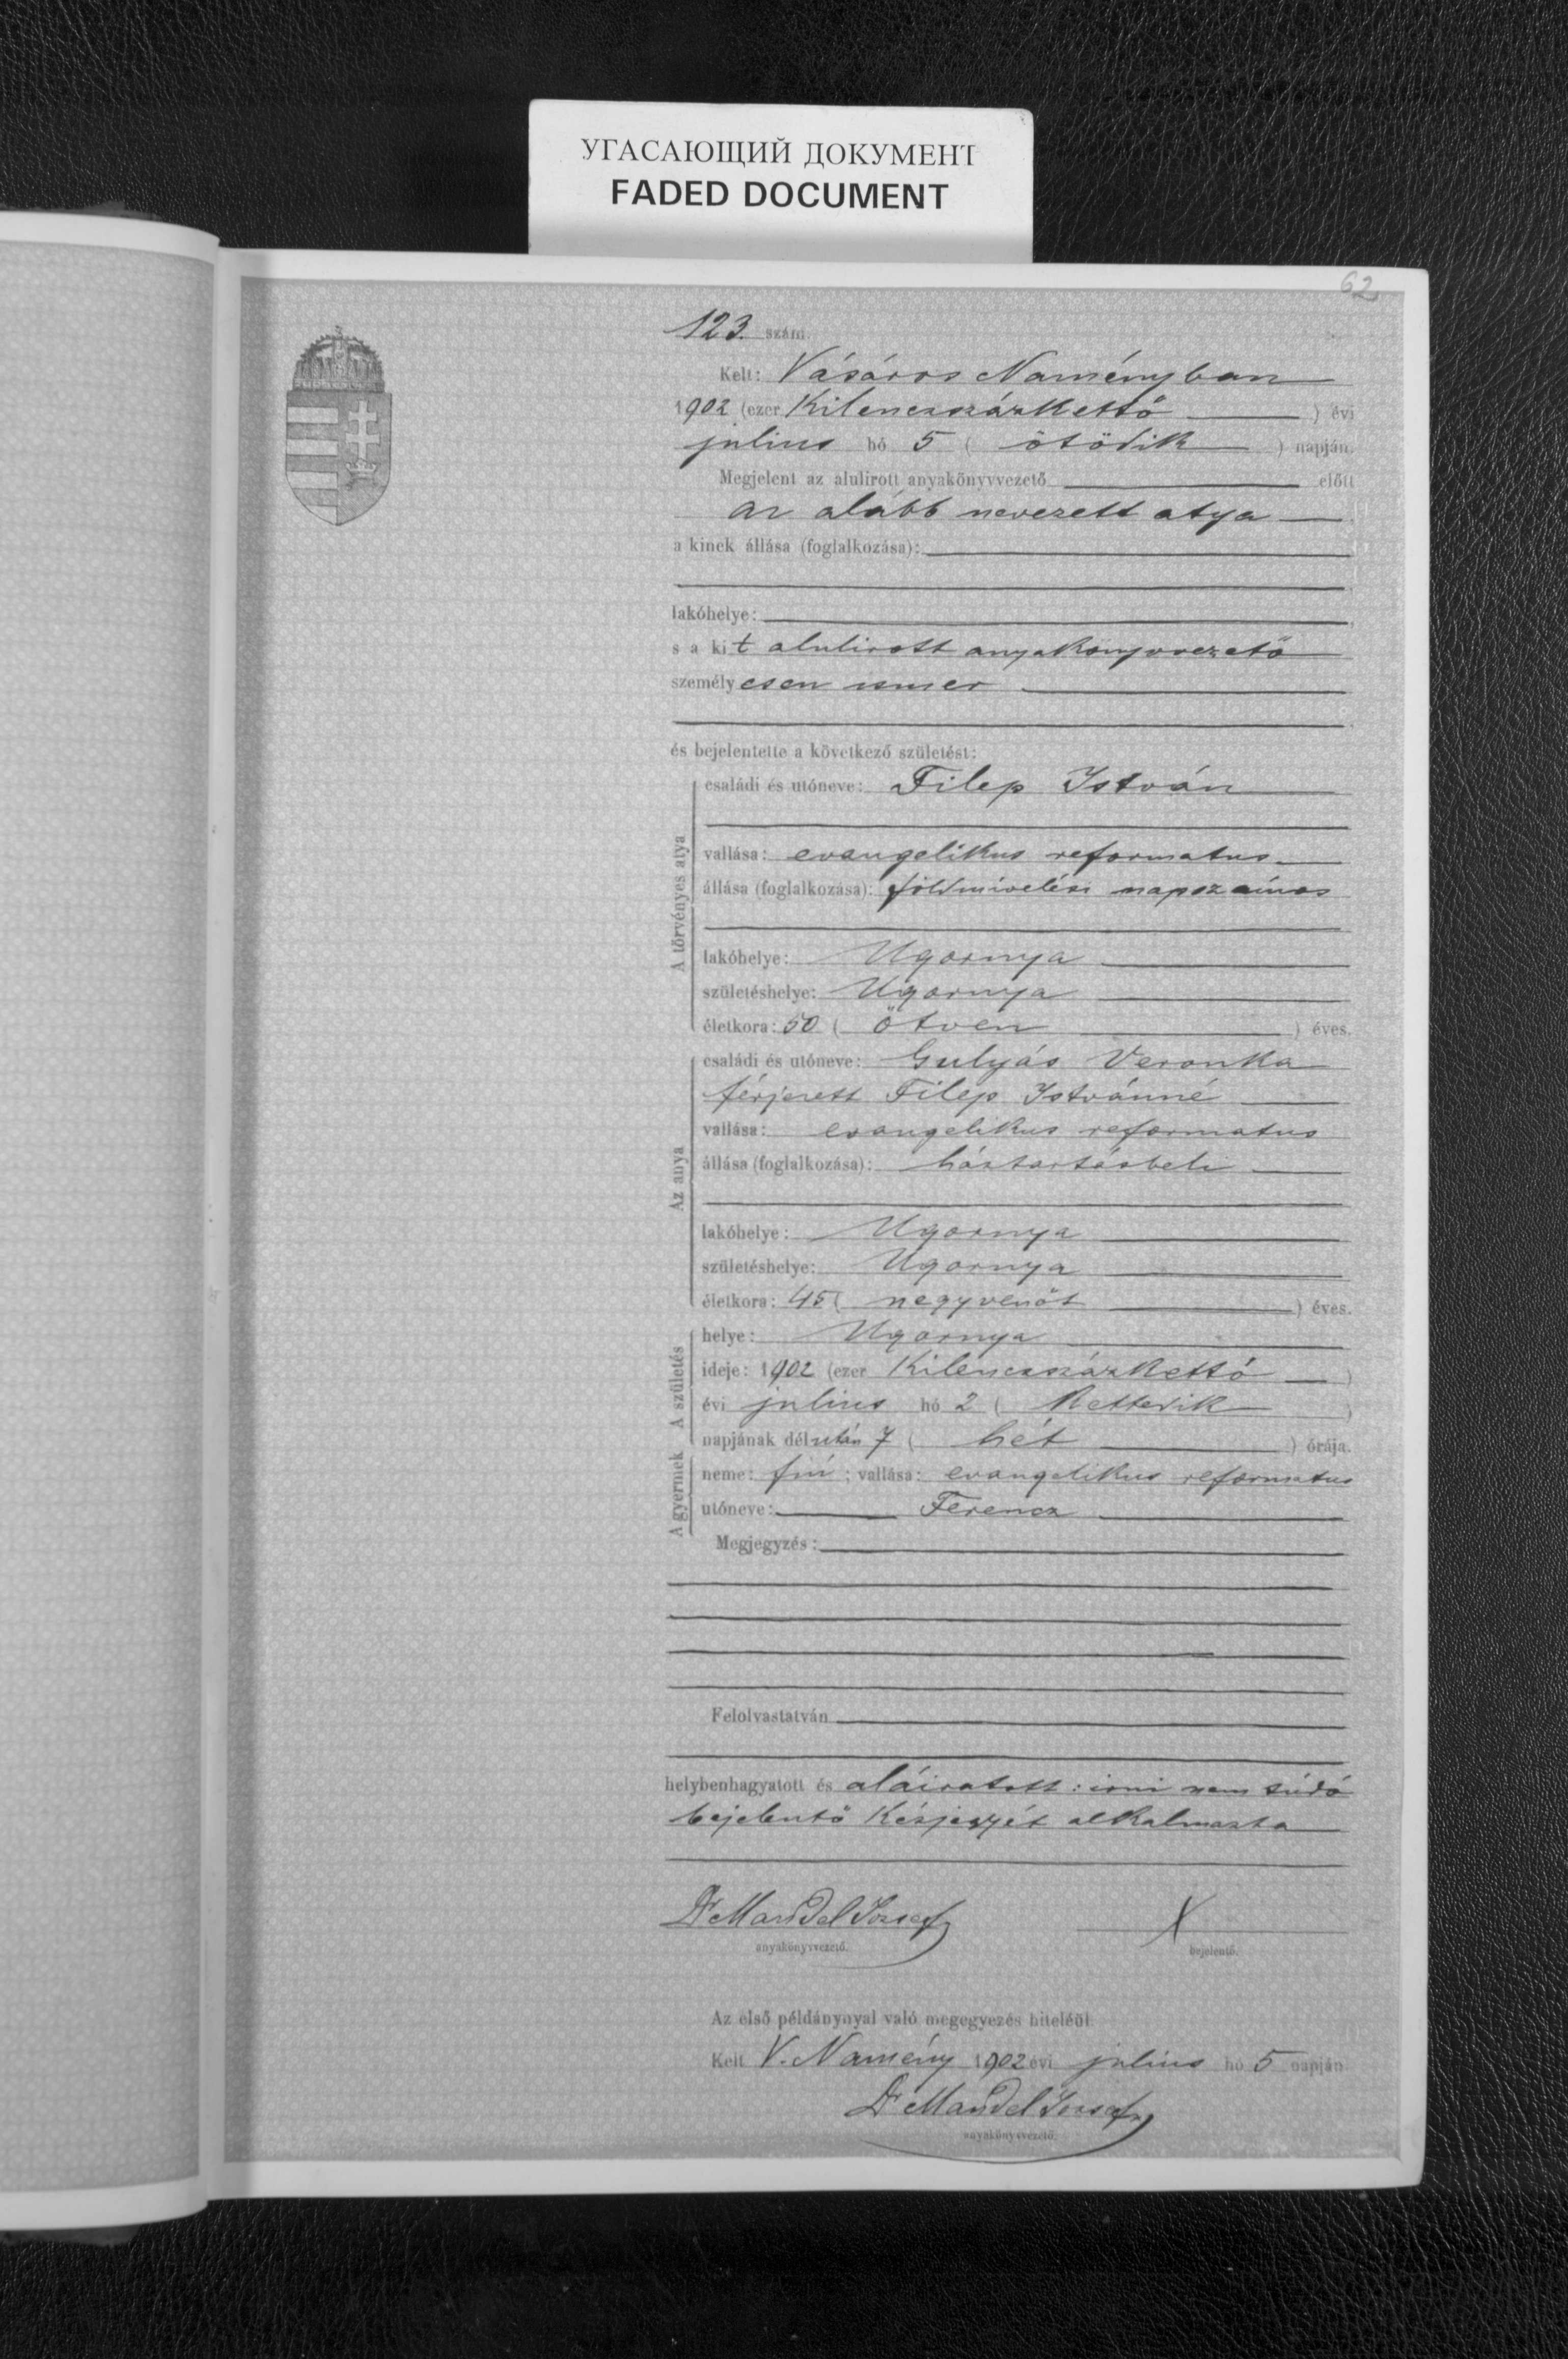 УГАСАЮЩИЙ ДОКУМЕНТ
FADED DOCUMENT
62
123. szám.
Kelt: Vásáros Naményban
1902 (ezer Kilenczszázkettő ) évi
julius hó 5 ( ötödik ) napján.
Megjelent az alulirott anyakönyvvezető előtt
az alább nevezett atya
a kinek állása (foglalkozása):
lakóhelye:
s a kit alulirott anyakönyvvezető
személyesen ismer
és bejelentette a következő születést:
A törvényes atya
családi és utóneve: Filep István
vallása: evangelikus reformatus
állása (foglalkozása): földmivelési napszámos
lakóhelye: Ugornya
születéshelye: Ugornya
életkora: 50 ( ötven ) éves.
Az anya
családi és utóneve: Gulyás Veronka
férjezett Filep Istvánné
vallása: evangelikus reformatus
állása (foglalkozása): háztartásbeli
lakóhelye: Ugornya
születéshelye: Ugornya
életkora: 45 ( negyvenöt ) éves.
A születés
helye: Ugornya
ideje: 1902 (ezer Kilenczszázkettő )
évi julius hó 2 ( kettedik )
napjának délután 7 ( hét ) órája.
A gyermek
neme: fiú; vallása: evangelikus reformatus
utóneve: Ferencz
Megjegyzés:
Felolvastatván
helybenhagyatott és aláiratott: irni nem túdó
bejelentő kézjegyét alkalmazta
Dr Mandel József X
anyakönyvvezető. bejelentő.
Az első példánynyal való megegyezés hiteléül.
Kelt V. Namény 1902 évi julius hó 5 napján
Dr Mandel József
anyakönyvvezető.